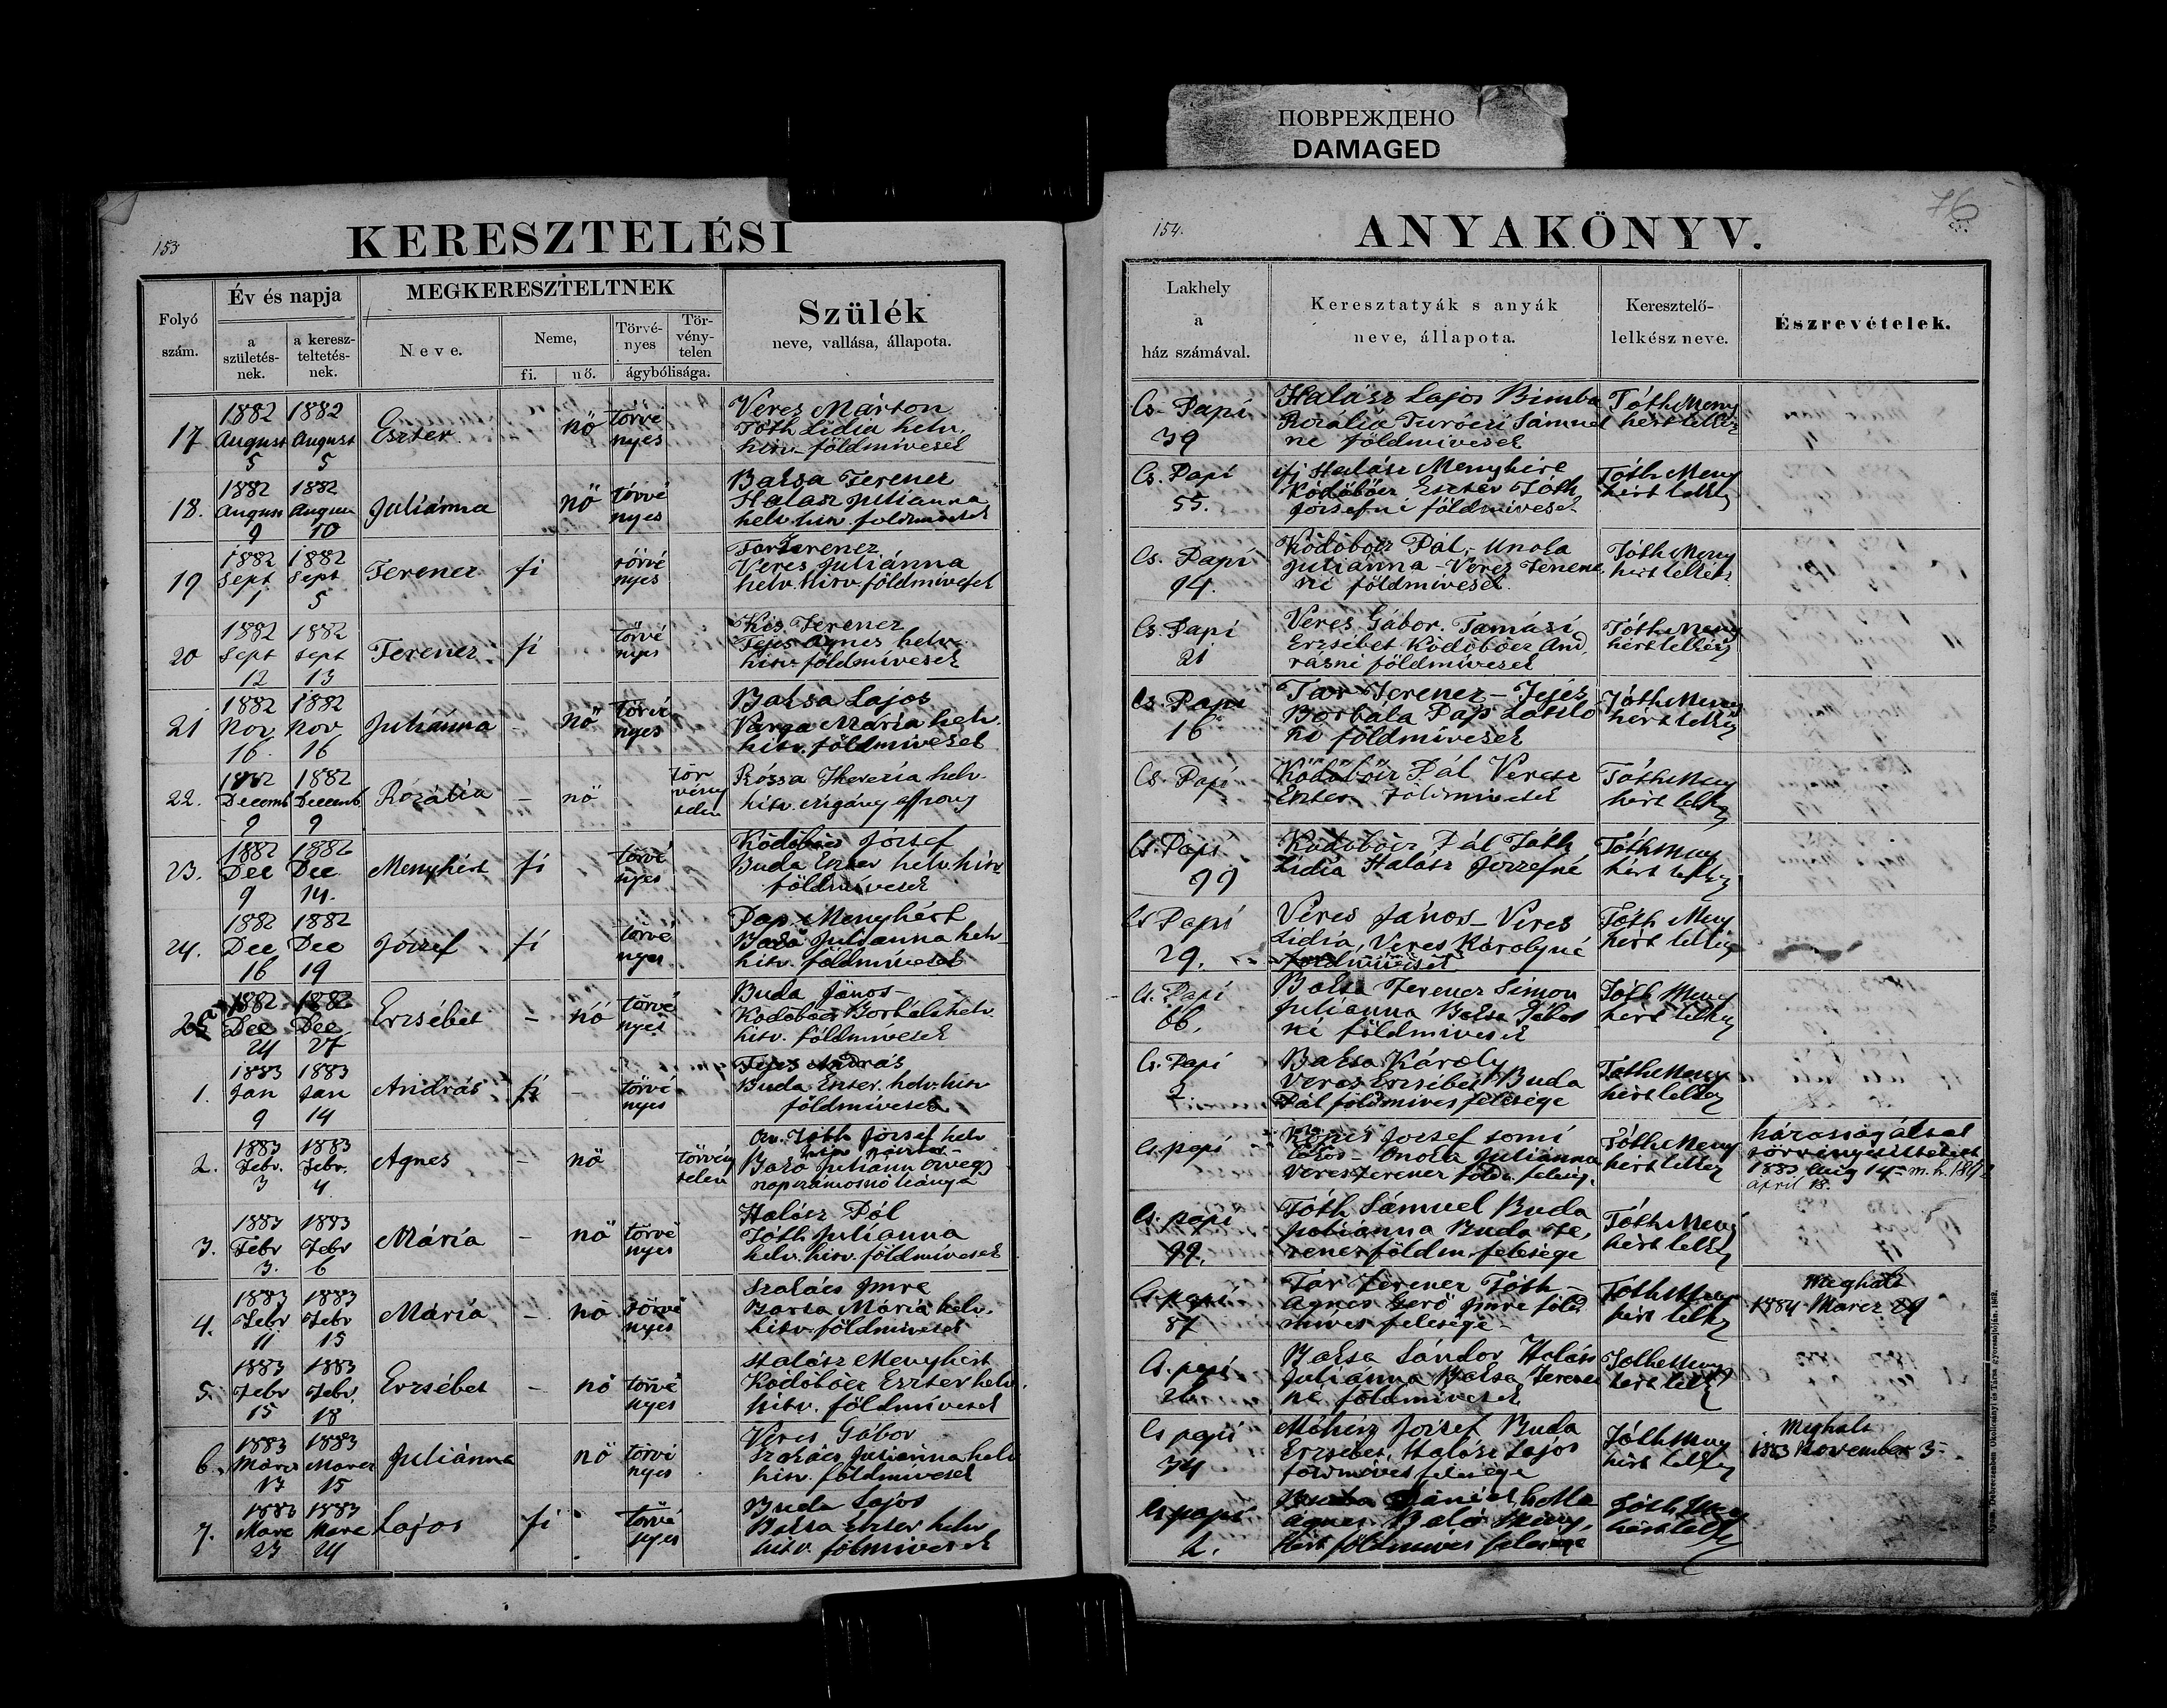 ПОВРЕЖДЕНО
DAMAGED
76
153
KERESZTELÉSI
Folyó szám.
Év és napja
a születés-nek.
a keresz-teltetés-nek.
MEGKERESZTELTNEK
Neve.
Neme,
fi.
nő.
Törvé-nyes
Tör-vény-telen
ágybólisága.
Szülék
neve, vallása, állapota.
17 1882 August 5 1882 August 5 Eszter nö törvé nyes
Veres Márton
Tóth Lidia helv.
hitv. földmívesek
18. 1882 August 9 1882 August 10 Juliánna nö törvé nyes
Baksa Ferencz
Halász Julianna
helv. hitv. földmívesek
19 1882 Sept 1 1882 Sept 5 Ferencz fi törvé nyes
Tar Ferencz
Veres Juliánna
helv. hitv. földmívesek
20 1882 Sept 12 1882 Sept 13 Ferencz fi törvé nyes
Kis Ferencz
Fejes Agnes helv.
hitv. földmívesek
21 1882 Nov. 16. 1882 Nov 16 Juliánna - nö törvé nyes
Baksa Lajos
Varga Maria helv.
hitv. földmívesek
22. 1882 Decemb 9 1882 Decemb 9 Rozália - nö tör vény telen
Rózsa Therezia helv.
hitv. czigány
23. 1882 Dec 9 1882 Dec 14. Menyhért fi törvé nyes
Ködöböcz József
Buda Eszter helv. hitv.
földmívesek
24. 1882 Dec 16 1882 Dec 19 József fi törvé nyes
Pap Menyhért
Julianna helv.
hitv. földmívesek
25 1882 Dec 24 1882 Dec 27 Erzsébet - nö törvé nyes
Buda János -
Ködöböcz Borbála helv.
hitv. földmívesek
1. 1883 Jan 9 1883 Jan 14 András fi - törvé nyes
Fejes András
Buda Eszter. helv. hitv
földmívesek
2. 1883 Febr. 3 1883 Febr. 4 Agnes - nö törvény telen
Tóth József helv
Julianna özvegy
napszámosnö leánya
3. 1883 Febr 3. 1883 Febr 6 Mária - nö törvé nyes
Halász Pál
Tóth Julianna
helv. hitv. földmívesek
4. 1883 Febr 11 1883 Febr 15 Mária - nö törvé nyes
Szakács Imre
Barta Mária helv.
hitv. földmívesek
5. 1883 Febr 15 1883 Febr. 18 Erzsébet - nö törvé nyes
Halász Menyhért
Ködöböcz Eszter helv.
hitv. földmívesek
6. 1883 Marcz 13 1883 Marcz 15 Juliánna nö törvé nyes
Veres Gábor
Szakács Julianna helv
hitv. földmívesek
7. 1883 Marc 23 1883 Marc 24 Lajos fi törvé nyes
Buda Lajos
Baksa Eszter helv
hitv. fölmívesek
154.
ANYAKÖNYV.
Lakhely a ház számával.
Keresztatyák s anyák neve, állapota.
Keresztelő-lelkész neve.
Észrevételek.
Cs. Papi 39
Halász Lajos Bimba
Rozália Turóczi Sámuel
né földmívesek
Tóth Meny hért lelkész
Cs. Papi 55.
ifj Halász Menyhére
Ködöböcz Eszter Tóth
Józsefné földmívesek
Tóth Meny hért lelkész
Cs. Papi 94.
Ködöböcz Pál,- Unoka
Juliánna - Veres Ferencz
né földmívesek
Tóth Meny hért lelkész
Cs. Papi 21
Veres Gábor Tamási
Erzsébet Ködöböcz And
rásné földmívesek
Tóth Meny hért lelkész
Cs. Papi 16
Tar Ferencz - Fejés
Borbála Pap László
né földmívesek
Tóth Meny hért lelkész
Cs. Papi
Ködöböcz Pál Veress
Eszter földmívesek
Tóth Meny hért lelkész
Cs. Papi 99
Ködöböcz Pál Tóth
Lidia Halász Jozsefné
Tóth Meny hért lelkész
Cs Papi 29.
Veres János - Veres
Lidia, Veres Károlyné
földmívesek
Tóth Meny hért lelkész
Cs. Papi 66.
Baksa Ferencz Simon
Julianna Baksa
né földmívesek
Tóth Meny hért lelkész
Cs. Papi 2.
Baksa Károly
Veres Erzsébet Buda
Pál földmíves felesége
Tóth Meny hért lelkész
Cs. papi
József somi
lakos - Onoka Julianna
Veres Ferencz földm. felesége
Tóth Meny hért lelkész
házasság által
törvényesíttetett
1883 Aug 14
april 18.
Cs. papi 99.
Tóth Sámuel Buda
Julianna Buda Fe,
rencz földm. felesége
Tóth Meny hért lelkész
Cs papi 87
Tar Ferencz Tóth -
Agnes Gerö Imre föld
míves felesége -
Tóth Meny hért lelkész
Meghalt
1884 Marcz 29
Cs. papi 26
Baksa Sándor Halász
Juliánna Baksa Ferencz
né földmívesek
Tóth Meny hért lelkész
Cs papi 34
József Buda
Erzsébet, Halász Lajos
földmíves felesége
Tóth Meny hért lelkész
Meghalt
1883 November 3
Cs papi 2.
Buda Dániel
Agnes
hért földmíves felesége
Tóth Meny hért lelkész